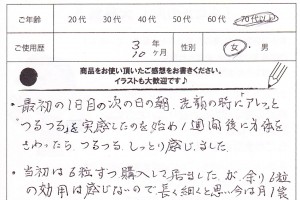 ご年齢 20代 30代 40代 50代 60代 70代以上
ご使用歴 3年10ヶ月 性別 女・男
商品をお使い頂いたご感想をお書きください。
イラストも大歓迎です♪
・最初の1日目の次の日の朝、洗顔の時に「アレッ」と
「つるつる」を実感したのを始め1週間後に身体を
さわったら つるつる、しっとり感じました。
・当初は6粒ずつ購入して居ましたが、余り6粒
の効用は感じないので長く細くと思い今は月1袋